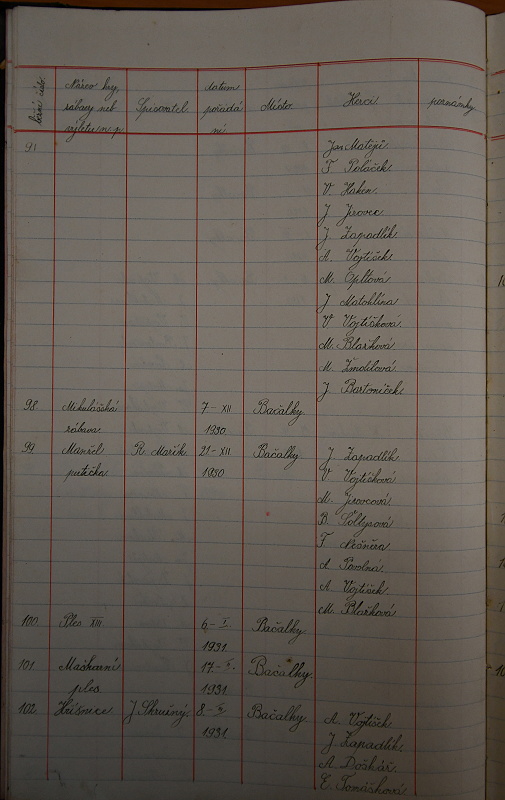 běžné číslo.
Název hry, zábavy neb výletu n. p.
Spisovatel.
datum pořádání
Místo
Herci
poznámky
Jar. Matějů
F. Poláček.
V. Haken.
J. Jirovec.
J. Zapadlík.
A. Vojtíšek.
M. Opltová
J. Matohlína
V. Vojtíšková.
M. Blažková
M. Zmátlová.
J. Bartoníček.
98. Mikulášská 7-XII Bačalky
zábava 1930
99. Manžel R. Mařík. 21-XII Bačalky J. Zapadlík.
putička. 1930 V. Vojtíšková.
M. Jirovcová.
B. Šoltysová
F. Nešněra
A. Povolná.
A. Vojtíšek
M. Blažková
100. Ples XIII. 6.-I. Bačalky.
1931.
101 Maškarní 17.-II. Bačalky.
ples 1931.
102. Hříšnice J. Skružný. 8.- Bačalky A. Vojtíšek
1931. J. Zapadlík.
A. Doškář.
E. Tomášková